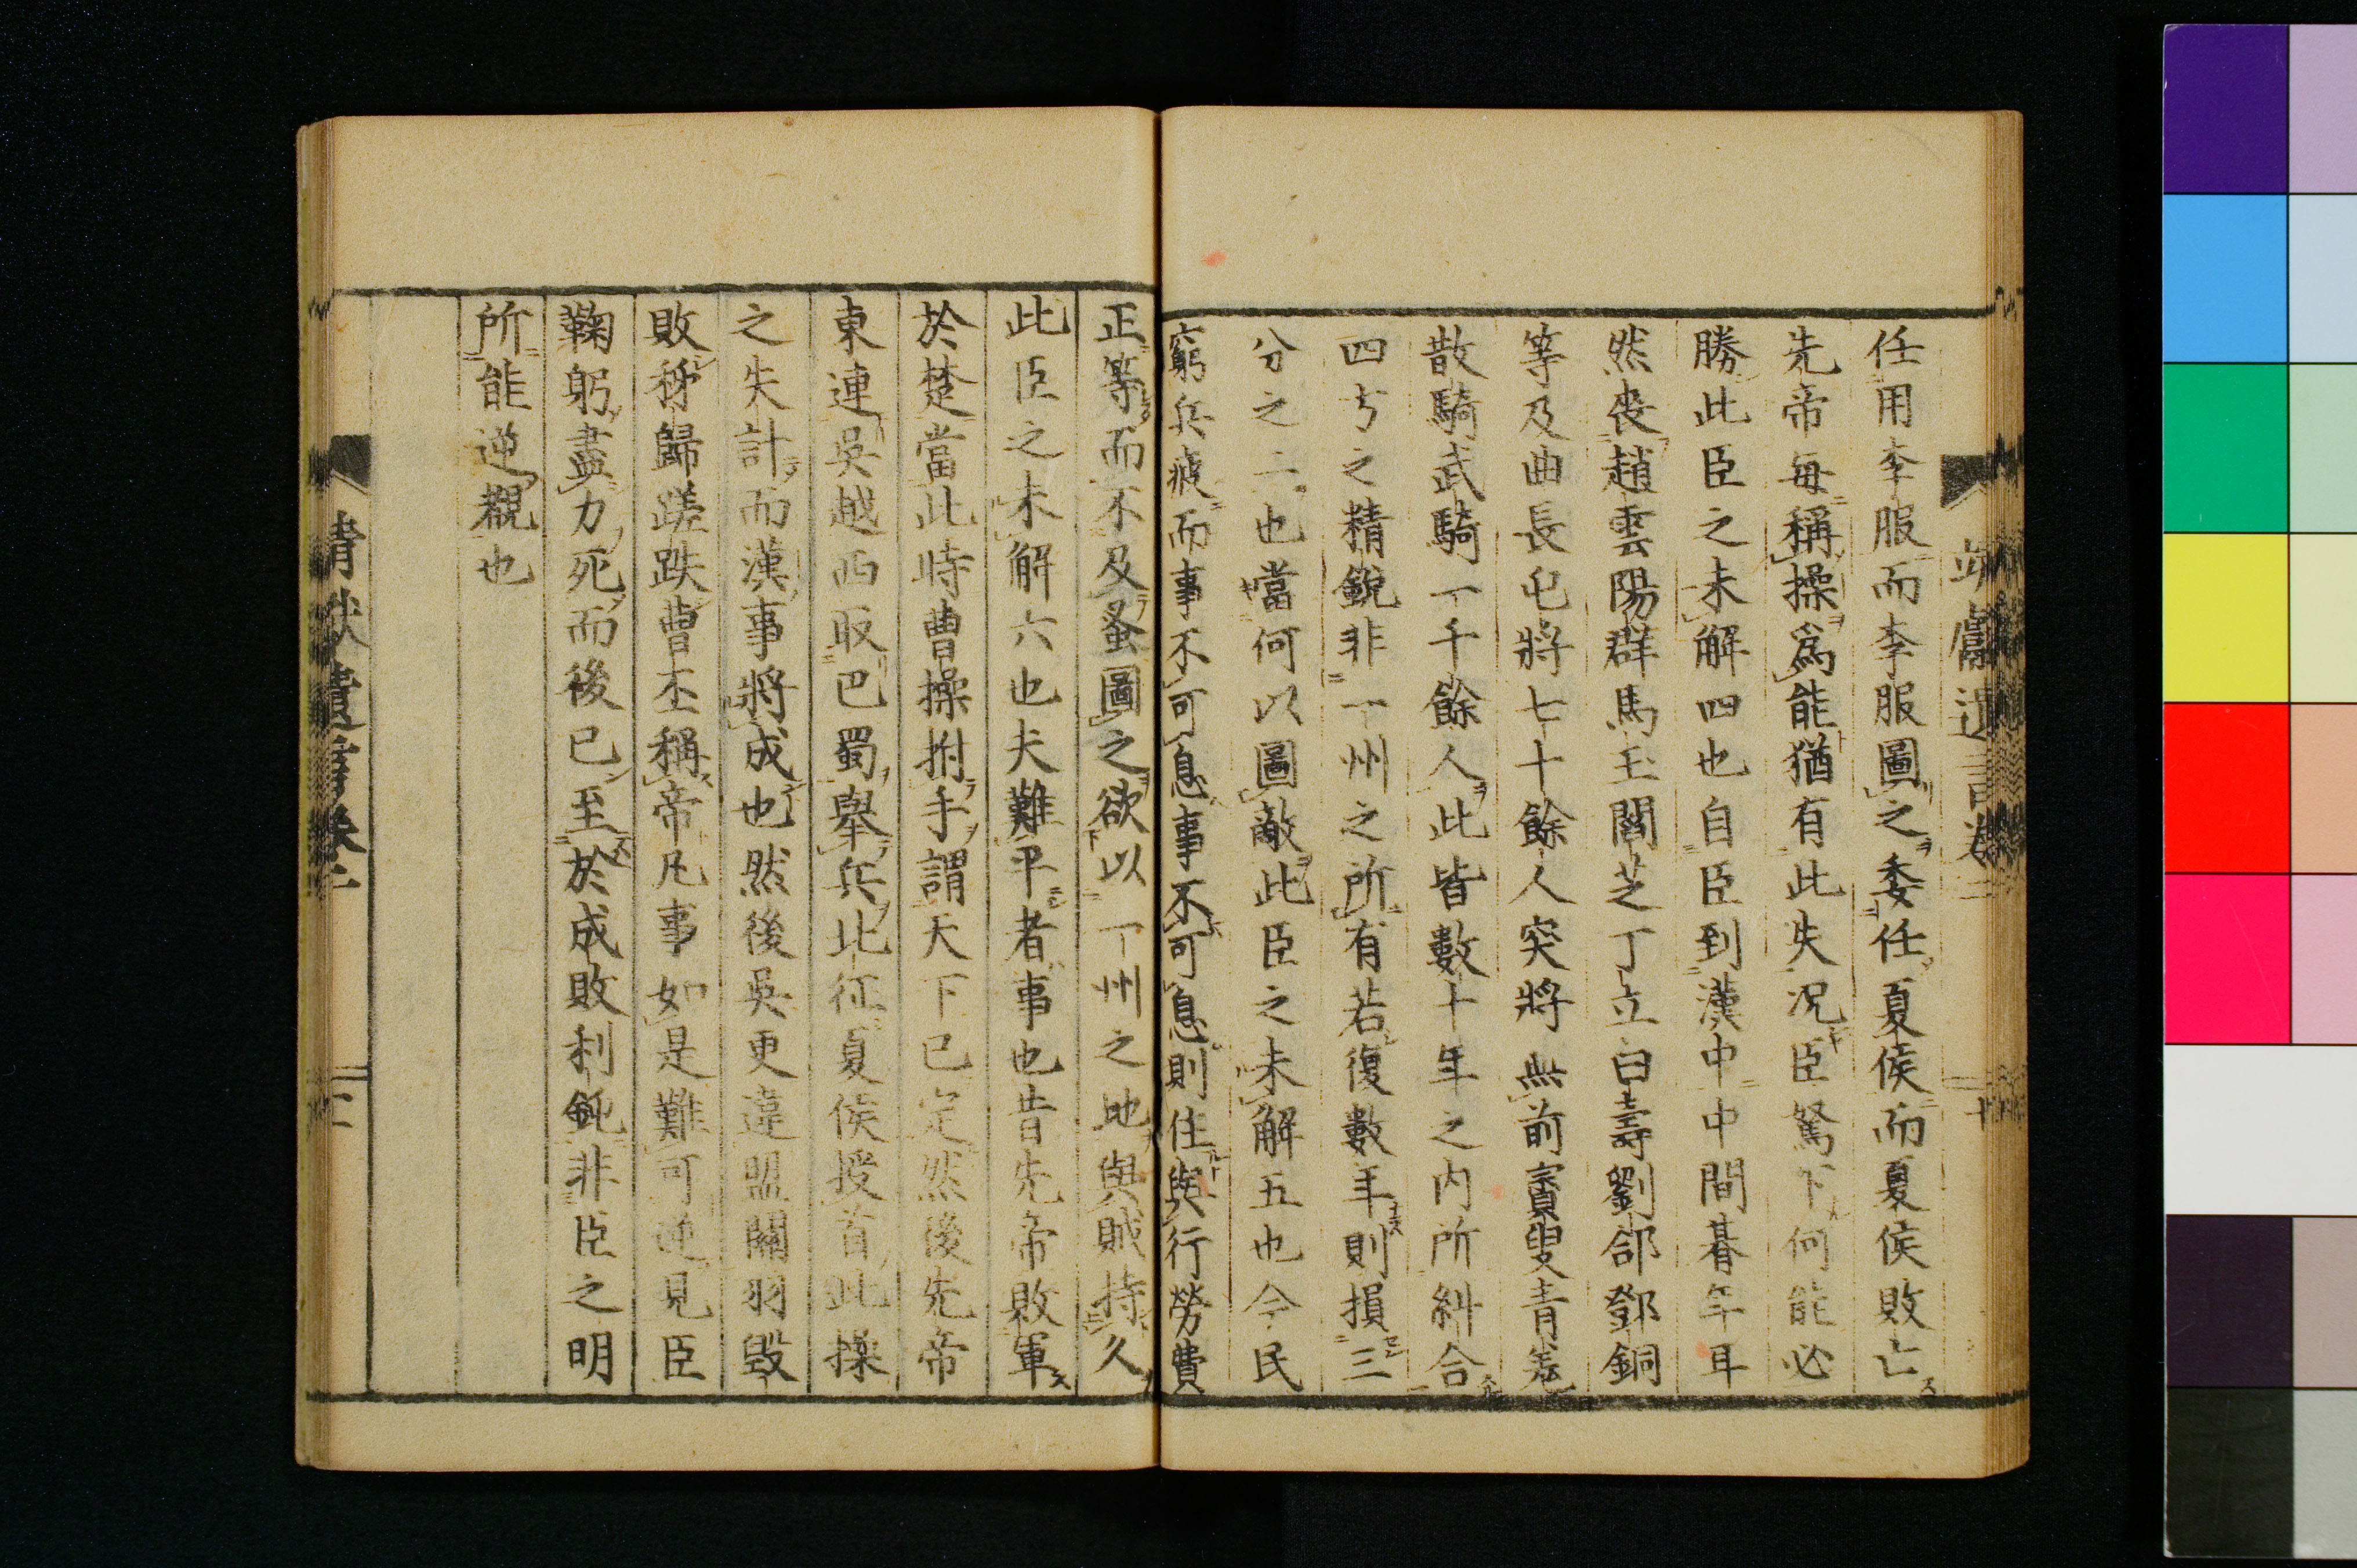 任用李服而李服圖之委任夏侯而夏侯敗亡
先帝每稱操爲能猶有此失况臣駑下何能必
勝此臣之未解四也自臣到漢中中間朞年耳
然喪趙雲陽群馬玉閻芝丁立白壽劉郃鄧銅
等及曲長屯將七十餘人突將無前賨叟青羗
散騎武騎一千餘人此皆數十年之内所糾合
四方之精銳非一州之所有若復數年則損三
分之二也當何以圖敵此臣之未解五也今民
窮兵疲而事不可息事不可息則住與行勞費
正等而不及蚤圖之欲以一州之地與賊持久
此臣之未解六也夫難平者事也昔先帝敗軍
於楚當此時曹操拊手謂天下已定然後先帝
東連吳越西取巴蜀舉兵北征夏侯授首此操
之失計而漢事將成也然後吳更違盟關羽毀
敗秭歸蹉跌曹丕稱帝凡事如是難可逆見臣
鞠躬盡力死而後已至於成敗利鈍非臣之明
所能逆覩也